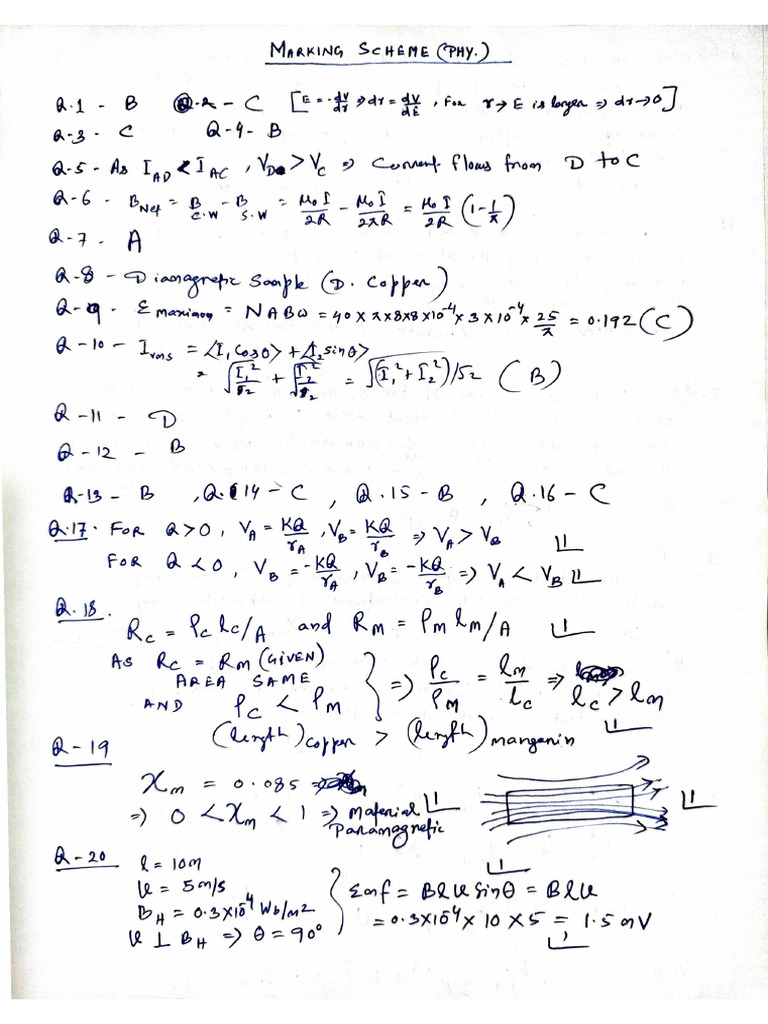 MARKING SCHEME (PHY.)
Q.1 - B Q.2 - C [E = -dV/dr ⇒ dr = dV/dE, For r → E is larger ⇒ dr → 0]
Q-3 - C Q-4 - B
Q-5 - As I_AD < I_AC, V_D > V_C ⇒ Current flows from D to C
Q-6 - B_Net = B_C.W - B_S.W = μ₀I/2R - μ₀I/2πR = μ₀I/2R (1 - 1/π)
Q-7 - A
Q-8 - Diamagnetic Sample (D. Copper)
Q-9 - Ɛ maximum = NABω = 40 × π × 8×8×10⁻⁴ × 3×10⁻⁴ × 25/π = 0.192 (C)
Q-10 - I_rms = <I₁ Cosθ> + <I₂ sinθ>
= √(I₁²/2) + √(I₂²/2) = √(I₁² + I₂²)/√2 (B)
Q-11 - D
Q-12 - B
Q-13 - B , Q.14 - C , Q.15 - B , Q.16 - C
Q.17. FOR Q>0, V_A = KQ/r_A , V_B = KQ/r_B ⇒ V_A > V_B 1
FOR Q<0, V_B = -KQ/r_A , V_B = -KQ/r_B ⇒ V_A < V_B 1
Q.18.
R_C = ρ_C l_C/A and R_M = ρ_M l_M/A 1
AS R_C = R_M (GIVEN)
AREA SAME
AND ρ_C < ρ_M } ⇒ ρ_C/ρ_M = l_M/l_C ⇒ l_C > l_M
(length)copper > (length)manganin 1
Q-19
χ_m = 0.085
⇒ 0 < χ_m < 1 ⇒ Material Paramagnetic 1 1
Q-20
l = 10m
v = 5m/s
B_H = 0.3×10⁻⁴ Wb/m²
v ⊥ B_H ⇒ θ = 90°
} Emf = Blv Sinθ = Blv 1
= 0.3×10⁻⁴ × 10 × 5 = 1.5 mV 1